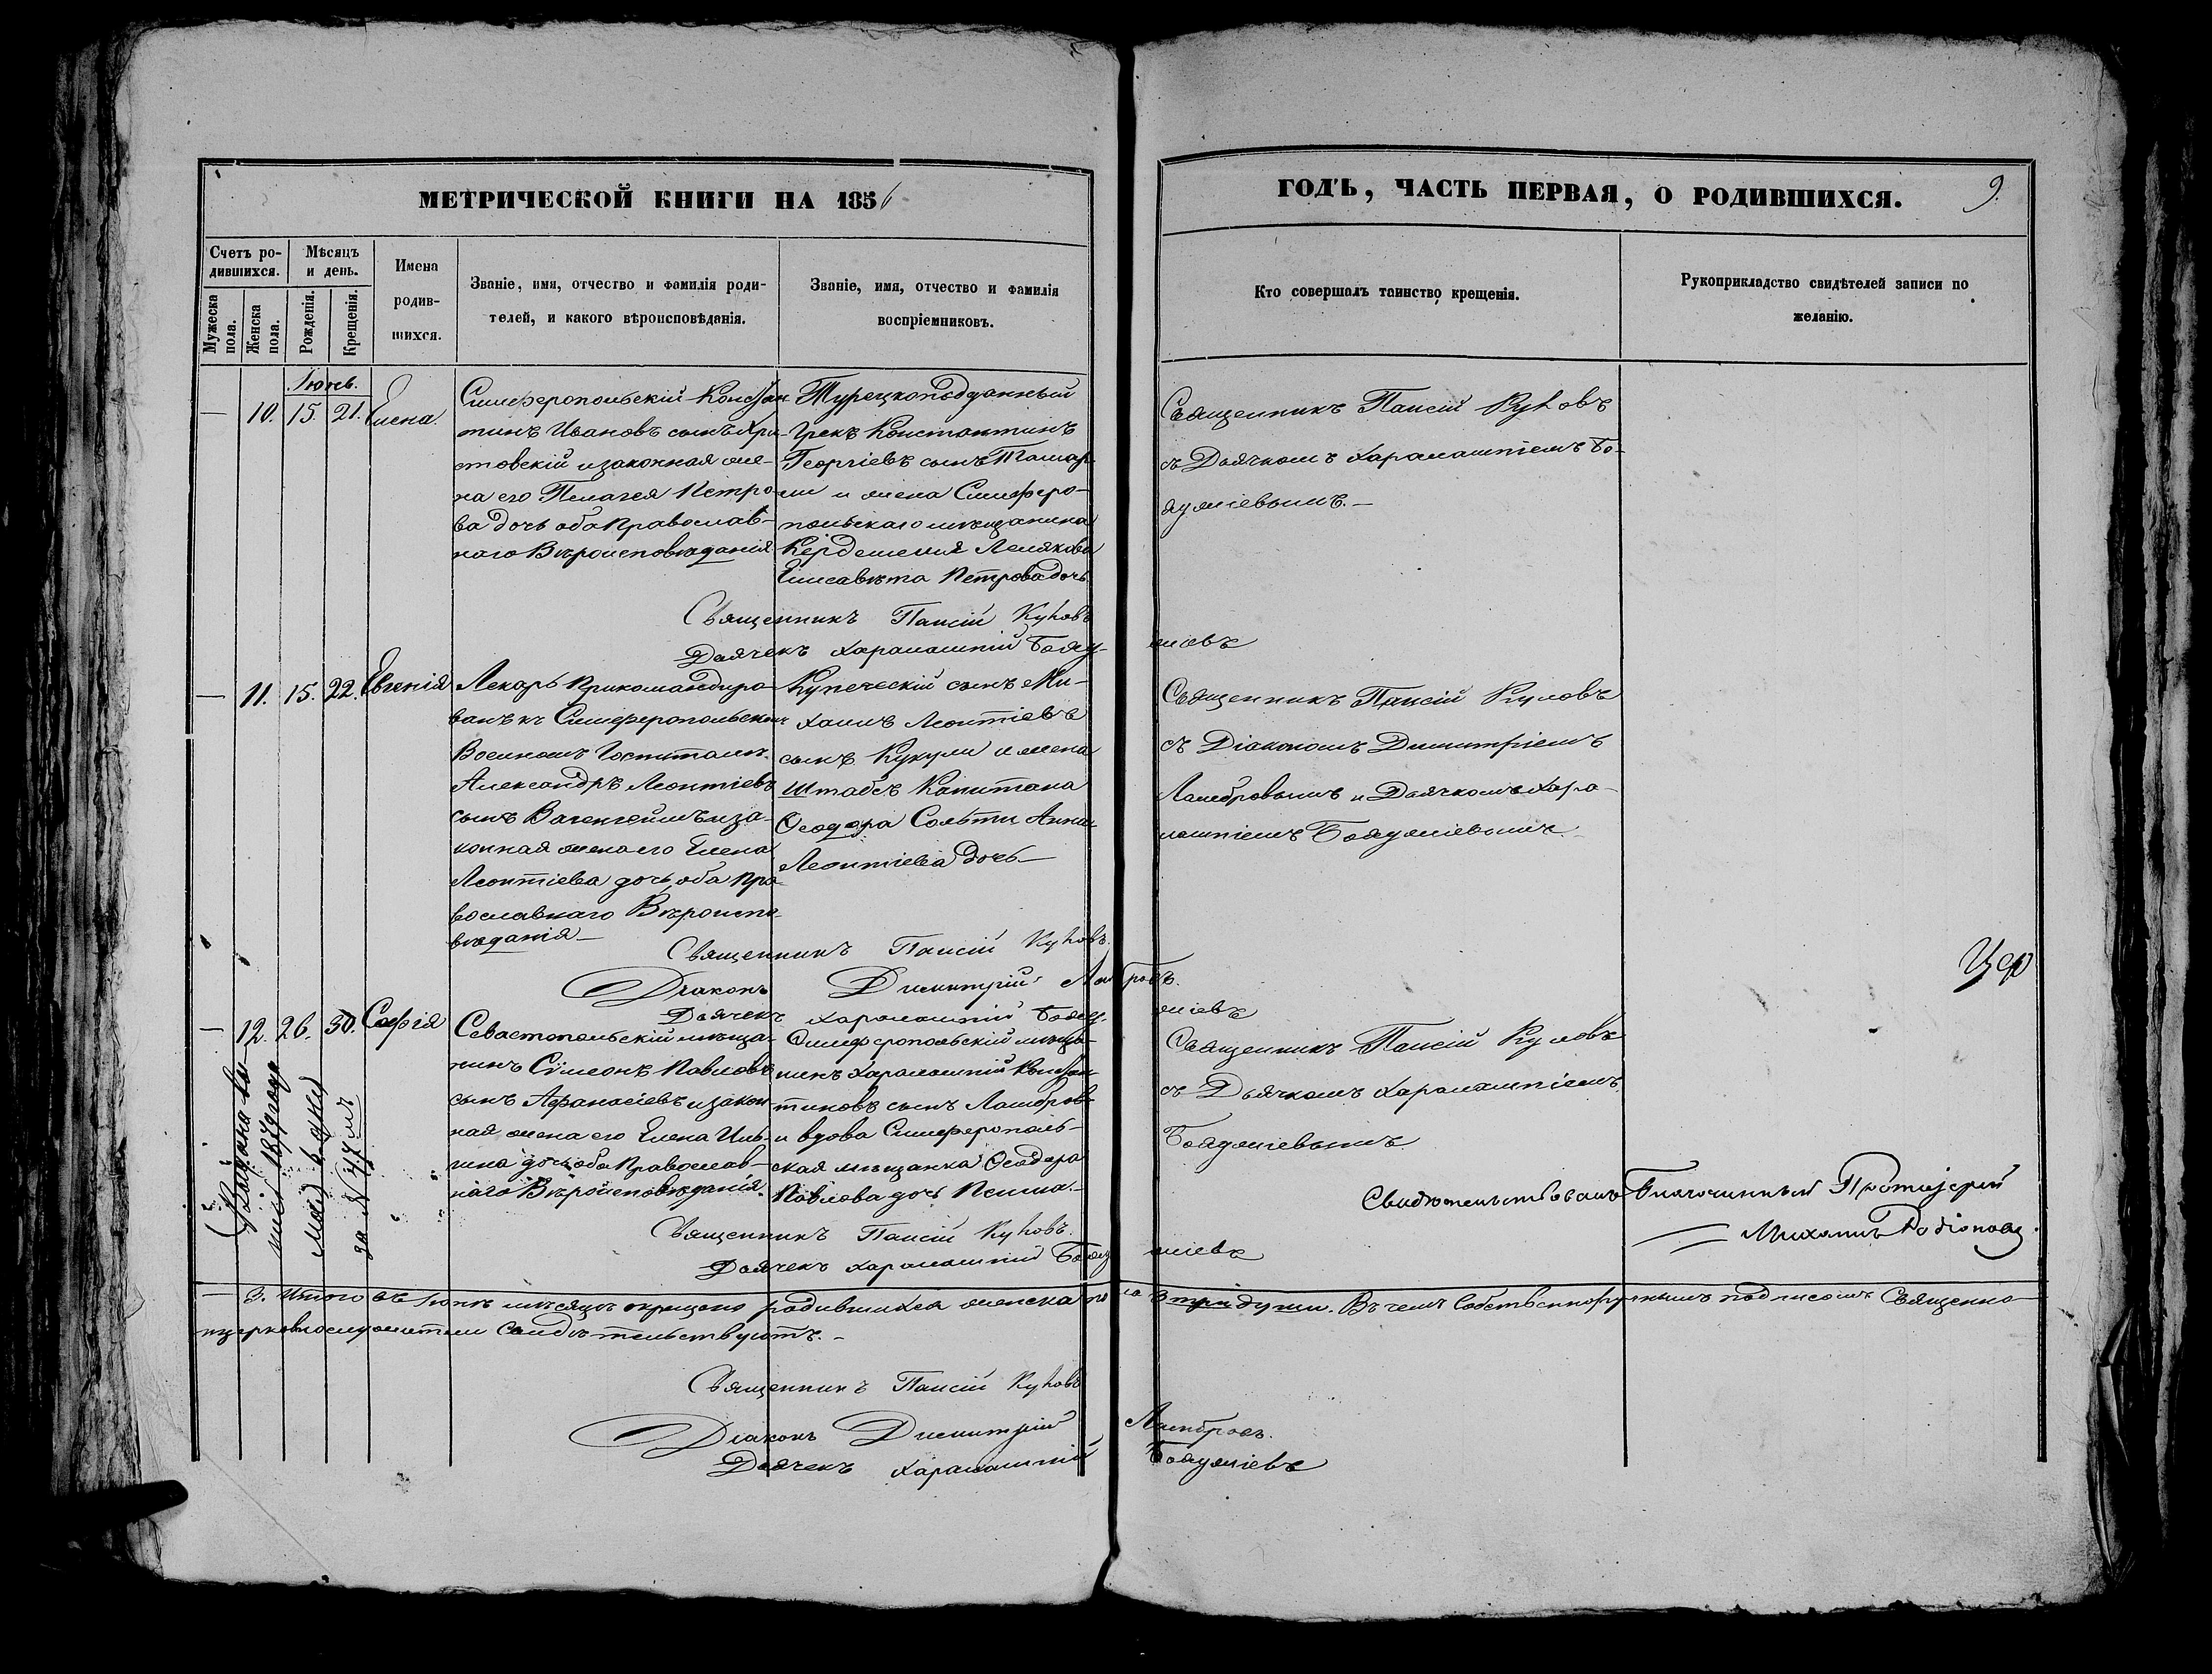 МЕТРИЧЕСКОЙ КНИГИ НА 1856
ГОДЪ, ЧАСТЬ ПЕРВАЯ, О РОДИВШИХСЯ.
9.
Счетъ ро-
дившихся.
Мѣсяцъ
и день.
Мужеска
пола.
Женска
пола.
Рожденія.
Крещенія.
Имена
родив-
шихся.
Званіе, имя, отчество и фамилія роди-
телей, и какого вѣроисповѣданія.
Званіе, имя, отчество и фамилія
воспріемниковъ.
Кто совершалъ таинство крещенія.
Рукоприкладство свидѣтелей записи по
желанію.
Іюнь.
— 10. 15. 21. Елена.
Симферопольскій Констан-
тинъ Ивановъ сынъ Хри-
стовскій и законная же-
на его Пелагея Петро-
ва дочь оба Православ-
наго Вѣроисповѣданія
Турецкоподданный
Грекъ Константинъ
Георгіевъ сынъ
и жена Симферо-
польскаго мѣщанина
Елисавета Петрова дочь
Священникъ Паисій
съ Дьячкомъ Харалампіемъ Бо-
яджіевымъ.—
Священникъ Паисій
Дьячекъ Харалампій Бояд-
жіевъ
— 11. 15. 22. Евгенія
Лекарь Прикомандиро-
ванъ къ Симферопольскому
Военномъ Госпиталѣ
Александръ Леонтіевъ
сынъ и за-
конная жена его Елена
Леонтіева дочь, оба Пра-
вославнаго Вѣроиспо-
вѣданія—
Купеческій сынъ Ми-
хаилъ Леонтіевъ
сынъ и жена
Штабсъ Капитана
Ѳеодора Анна
Леонтіева дочь—
Священникъ Паисій
съ Діакономъ Димитріемъ
Ламбровымъ и Дьячкомъ Хара-
лампіемъ Бояджіевымъ.—
Священникъ Паисій
Діаконъ Димитрій Ламбровъ.
Дьячекъ Харалампій Бояд-
жіевъ
— 12. 26. 30. Софія
Севастопольскій мѣща-
нинъ Сѵмеонъ Павловъ
сынъ Афанасіевъ и закон-
ная жена его Елена Иль-
ина дочь оба Православ-
наго Вѣроисповѣданія.
Симферопольскій мѣща-
нинъ Харалампій Констан-
тиновъ сынъ Ламбровъ
и вдова Симферополь-
ская мѣщанка Ѳеодора
Павлова дочь
Священникъ Паисій
съ Дьячкомъ Харалампіемъ
Бояджіевымъ
Священникъ Паисій
Дьячекъ Харалампій Бояд-
жіевъ
1879 года
мая 6 дня
за № 47
Свидѣтельствовалъ Благочинный Протоіерей
Михаилъ Родіоновъ.
— 3. Итого въ Іюнѣ мѣсяцѣ окрещено родившихся женска пола 3 три души. Въ чемъ Собственноручнымъ подписомъ Священно-
и церковнослужители Свидѣтельствуютъ.—
Священникъ Паисій
Діаконъ Димитрій Ламбровъ.
Дьячекъ Харалампій Бояджіевъ